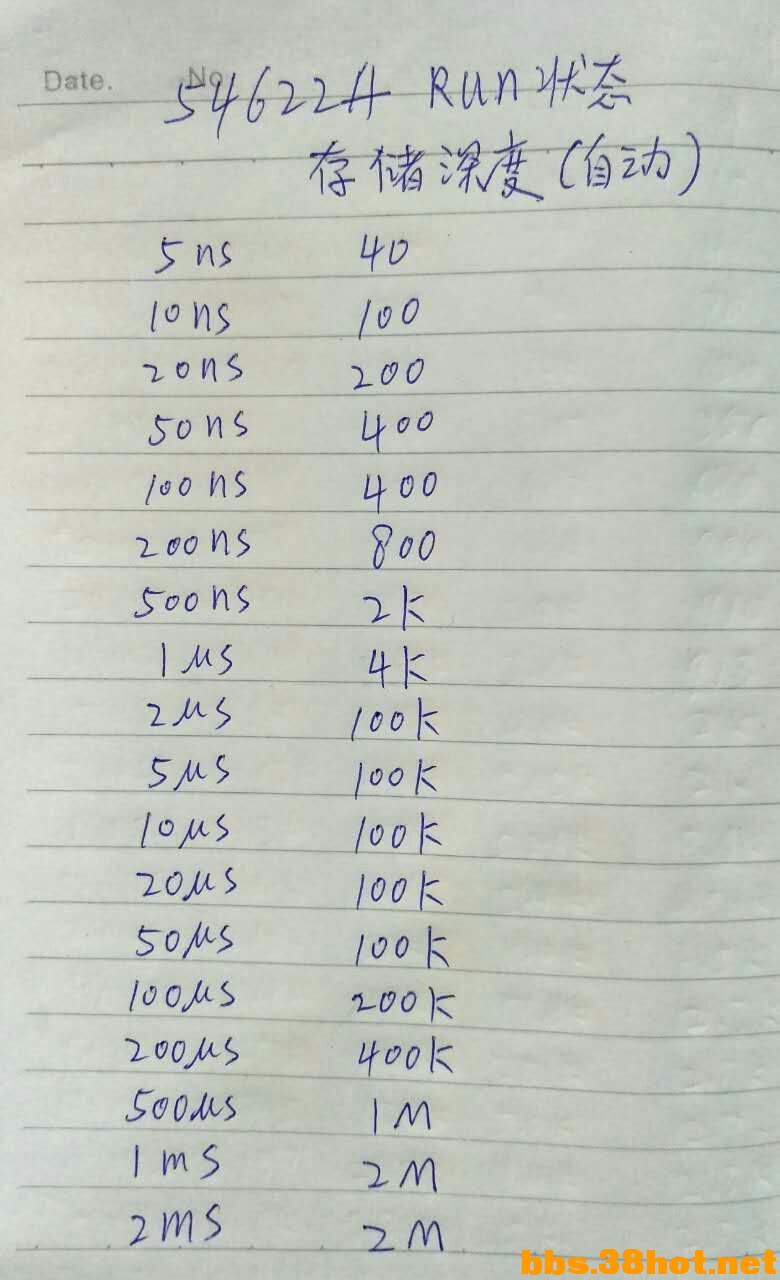 Date. No
54622A Run状态
存储深度(自动)
5ns 40
10ns 100
20ns 200
50ns 400
100ns 400
200ns 800
500ns 2K
1μs 4K
2μs 100K
5μs 100K
10μs 100K
20μs 100K
50μs 100K
100μs 200K
200μs 400K
500μs 1M
1ms 2M
2ms 2M
bbs.38hot.net